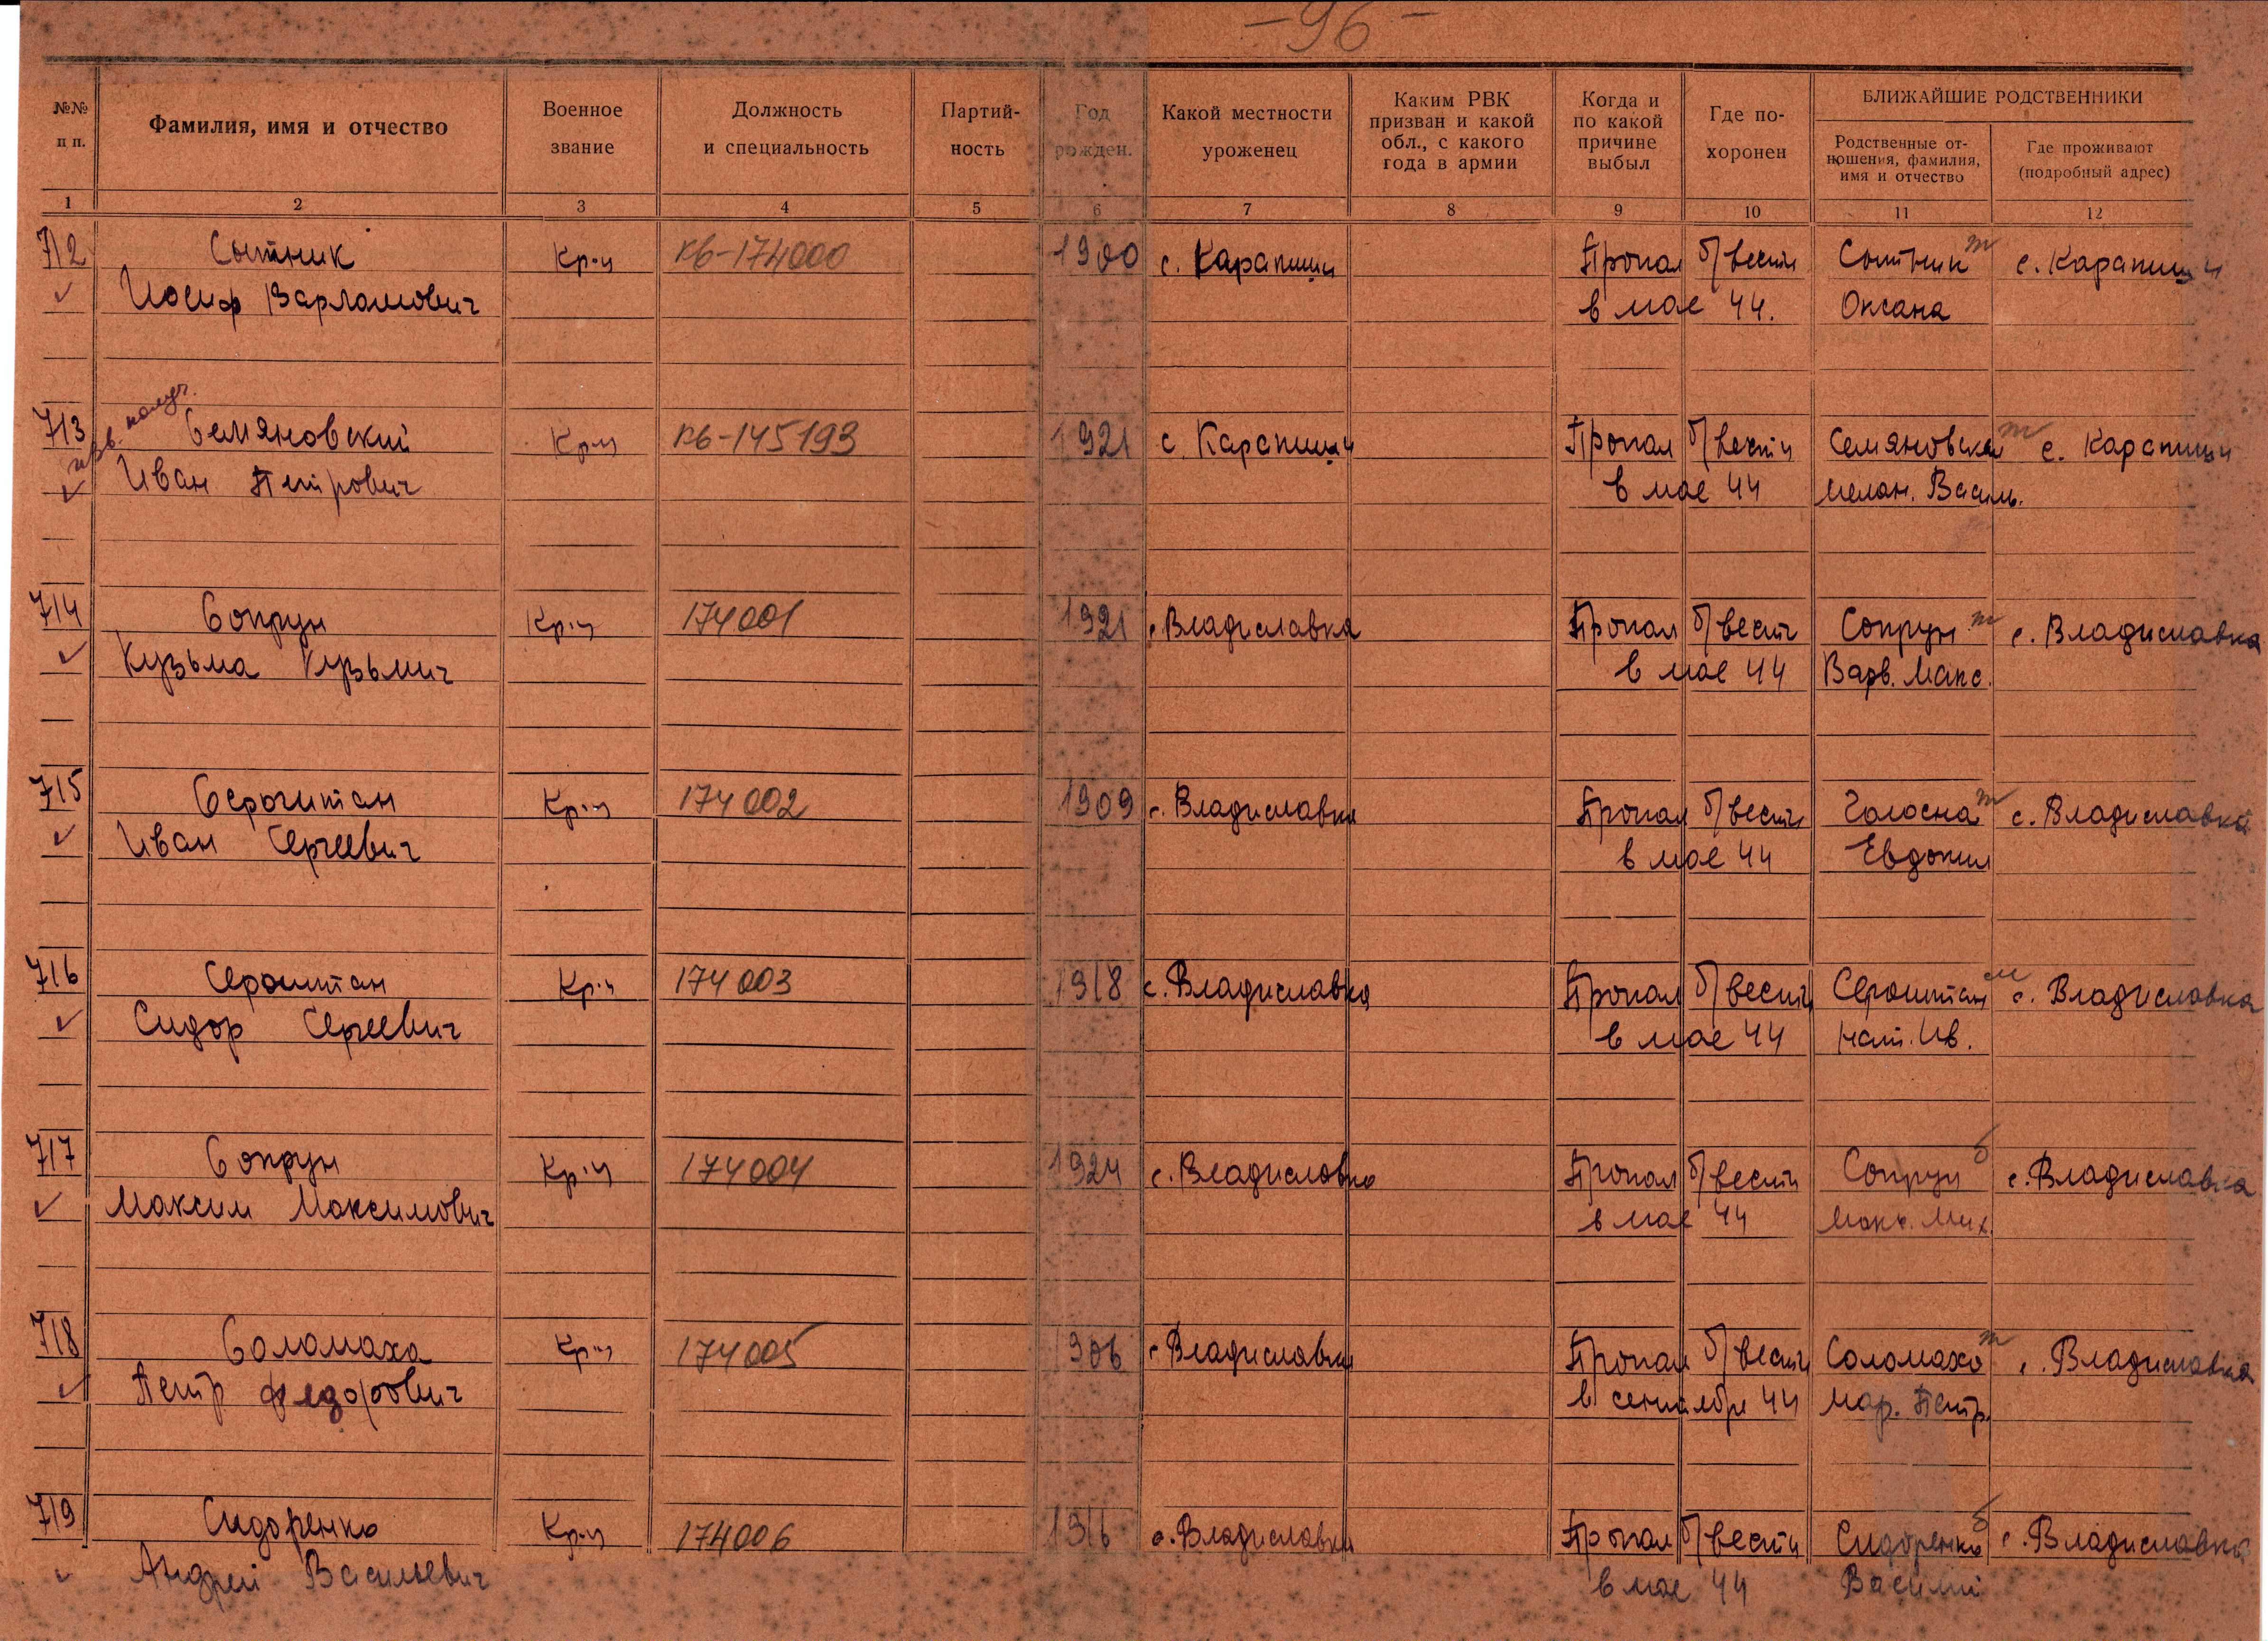 -96-
№№ п п.
Фамилия, имя и отчество
Военное звание
Должность и специальность
Партий-ность
Год рожден.
Какой местности уроженец
Каким РВК призван и какой обл., с какого года в армии
Когда и по какой причине выбыл
Где по-хоронен
БЛИЖАЙШИЕ РОДСТВЕННИКИ
Родственные от-ношения, фамилия, имя и отчество
Где проживают (подробный адрес)
1 2 3 4 5 6 7 8 9 10 11 12
712 Сытник Кр-ц КВ-174000 1900 с. Карапиши Пропал б/вести Сытник с. Карапиши
Иосиф Варламович в мае 44. Оксана
713 Семяновский Кр-ц КВ-145193 1921 с. Карапиши Пропал б/вести Семяновская с. Карапиши
Иван Петрович в мае 44 Мелан. Василь.
714 Сопрун Кр-ц 174001 1921 с. Владиславка Пропал б/вести Сопрун с. Владиславка
Кузьма Кузьмич в мае 44 Варв. Макс.
715 Серошитан Кр-ц 174002 1909 с. Владиславка Пропал б/вести Голосна с. Владиславка
Иван Сергеевич в мае 44 Евдокия
716 Сероштан Кр-ц 174003 1918 с. Владиславка Пропал б/вести Сероштан с. Владиславка
Сидор Сергеевич в мае 44 Нат. Ив.
717 Сопрун Кр-ц 174004 1924 с. Владиславка Пропал б/вести Сопрун с. Владиславка
Максим Максимович в мае 44 Мих.
718 Соломаха Кр-ц 174005 1906 с. Владиславка Пропал б/вести Соломаха с. Владиславка
Петр Федорович в сентябре 44 Мар. Петр.
719 Сидоренко Кр-ц 174006 1916 с. Владиславка Пропал б/вести Сидоренко с. Владиславка
Андрей Васильевич в мае 44 Василий